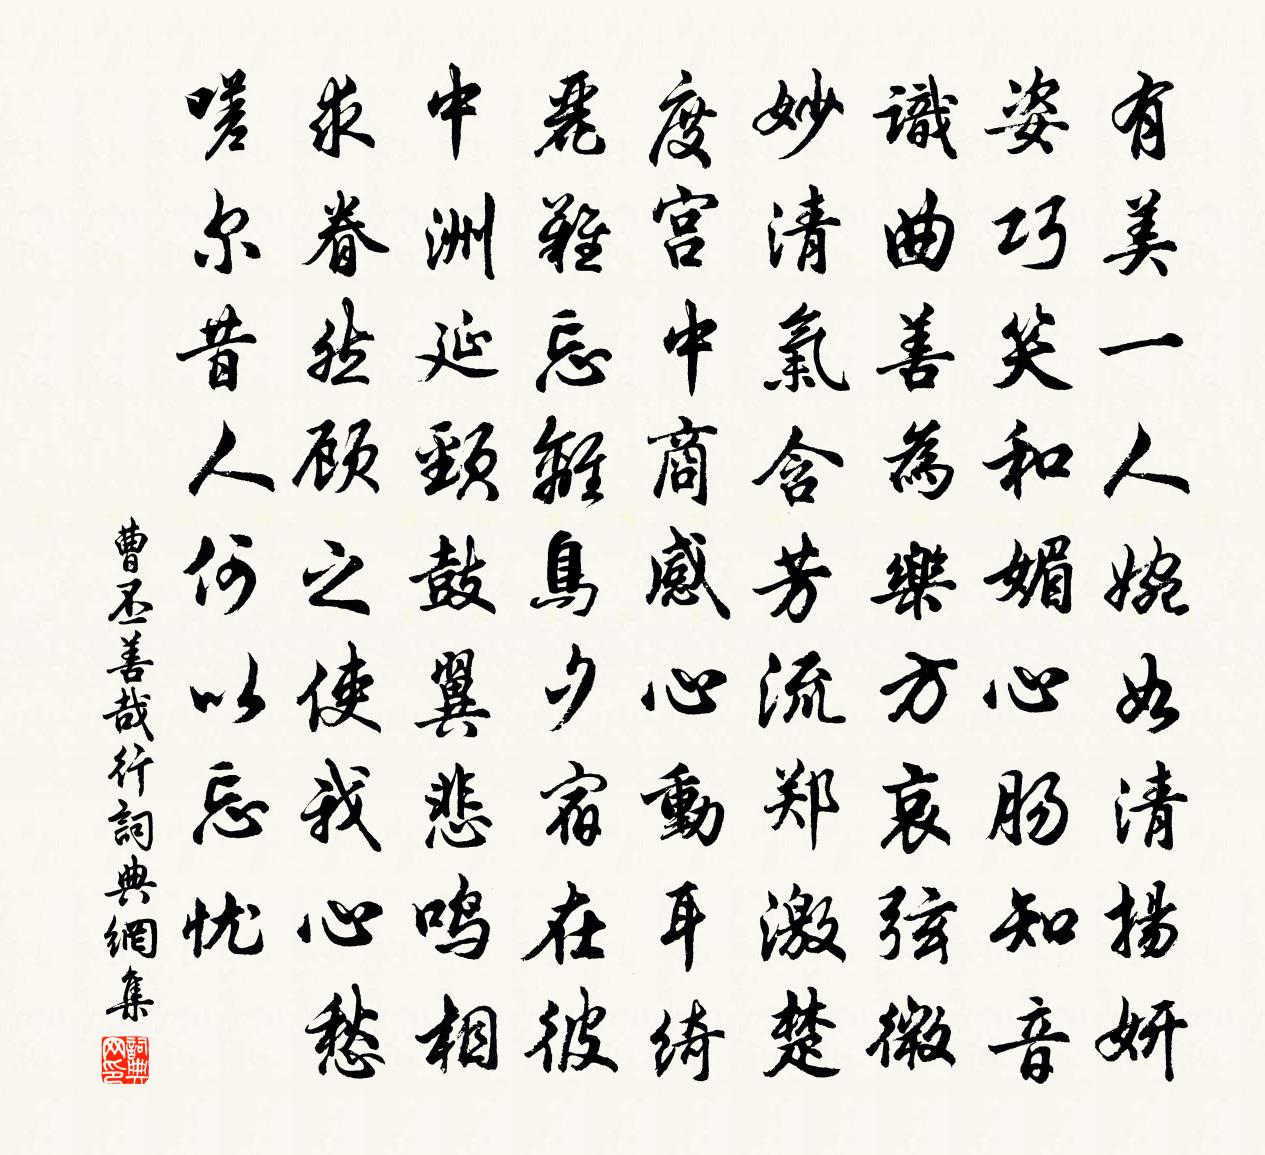 有美一人婉如清揚妍
姿巧笑和媚心肠知音
識曲善為樂方哀弦微
妙清氣含芳流郑激楚
度宫中商感心動耳绮
麗難忘離鳥夕宿在彼
中洲延頸鼓翼悲鸣相
求眷然顾之使我心愁
嗟尔昔人何以忘忧
曹丕善哉行詞典網集
詞典
网印